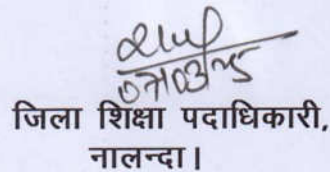 07/03/25
जिला शिक्षा पदाधिकारी,
नालन्दा।